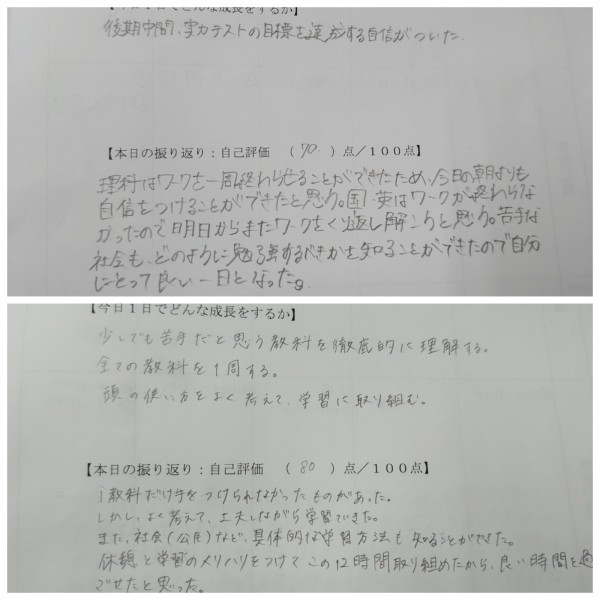 【今日1日でどんな成長をするか】
後期中間、実力テストの目標を達成する自信がついた。
【本日の振り返り：自己評価　（ 70. ）点／100点】
理科はワークを一周終わらせることができたため、今日の朝よりも
自信をつけることができたと思う。国・英はワークが終わらな
かったので明日からまたワークをくり返し解こうと思う。苦手な
社会も、どのように勉強するべきかを知ることができたので自分
にとって良い一日となった。
【今日1日でどんな成長をするか】
少しでも苦手だと思う教科を徹底的に理解する。
全ての教科を1周する。
頭の使い方をよく考えて、学習に取り組む。
【本日の振り返り：自己評価　（ 80 ）点／100点】
1教科だけ手をつけられなかったものがあった。
しかし、よく考えて、工夫しながら学習できた。
また、社会(公民)など、具体的な学習方法も知ることができた。
休憩と学習のメリハリをつけてこの12時間取り組めたから、良い時間を過
ごせたと思った。